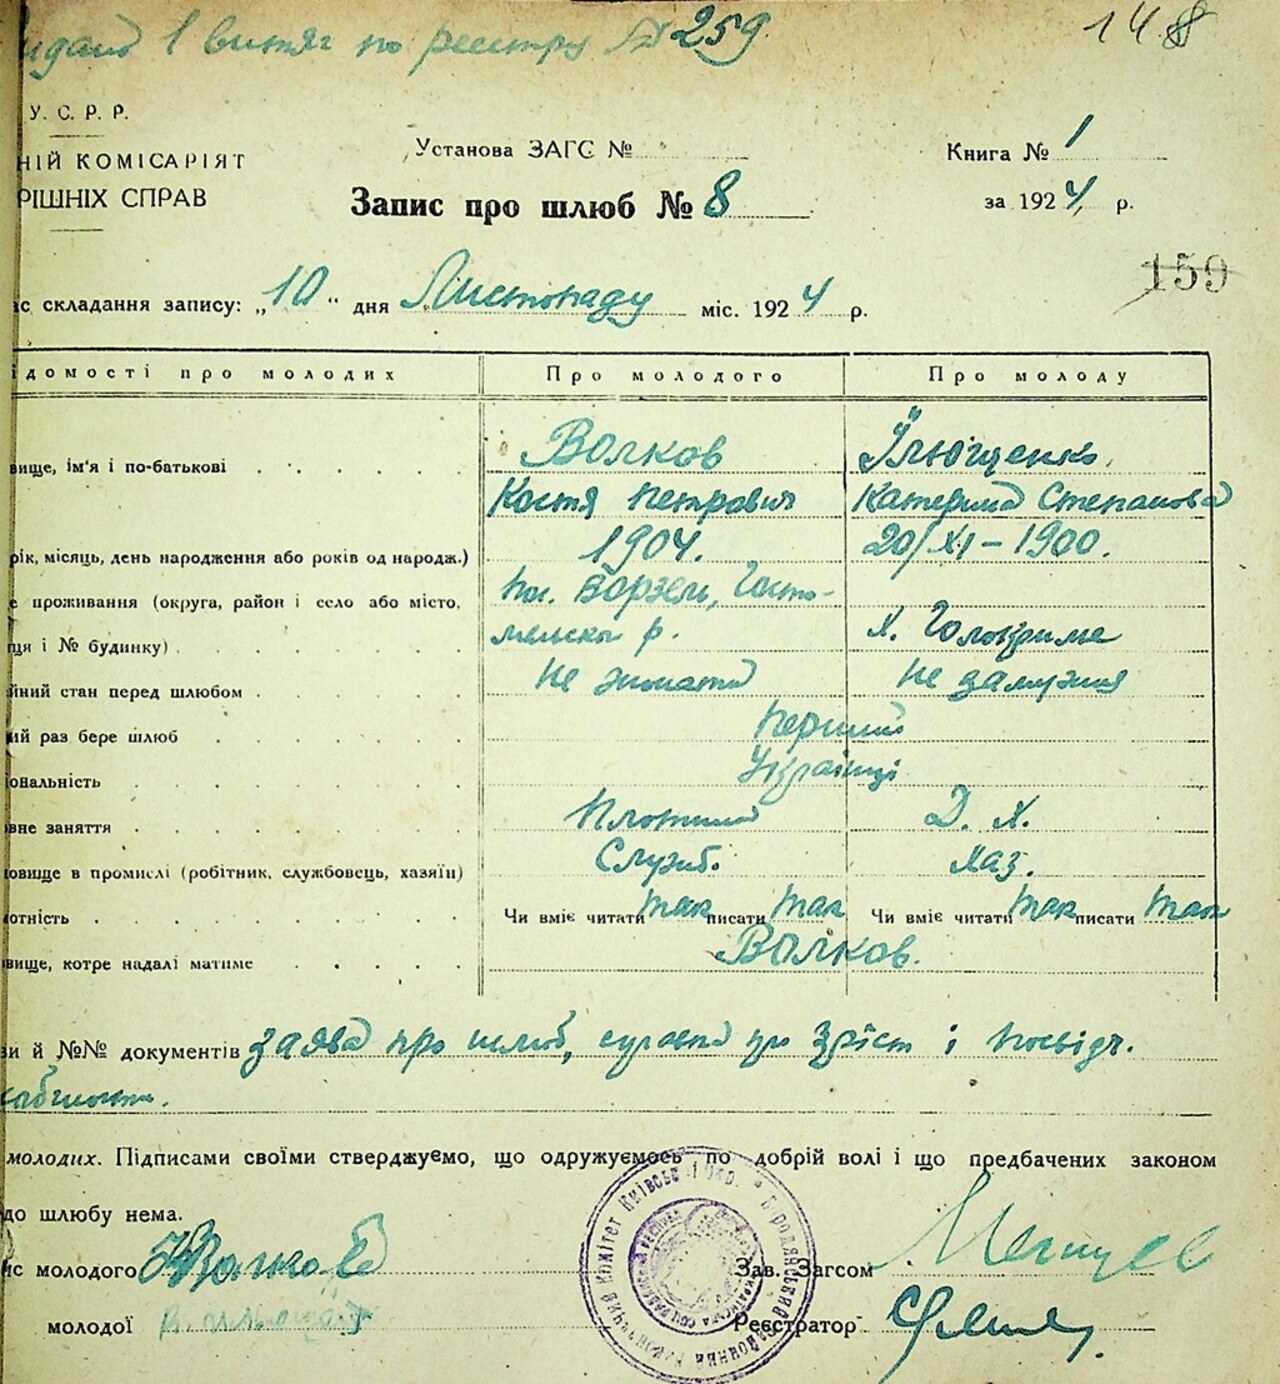 1 витяг по реєстру № 259.
148
У. С. Р. Р.
НІЙ КОМІСАРІЯТ
РІШНІХ СПРАВ
Установа ЗАГС №
Книга № 1
Запис про шлюб № 8
за 1924 р.
159
ас складання запису: „10“ дня Листопаду міс. 1924 р.
ідомості про молодих
Про молодого
Про молоду
вище, ім'я і по-батькові
Волков
Ілющенко
Костя Петрович
Катерина Степанова
рік, місяць, день народження або років од народж.)
1904.
20/XI – 1900.
е проживання (округа, район і село або місто,
пос. Ворзель, Госто-
ця і № будинку)
мельськ р.
х. Голокриме
йний стан перед шлюбом
Не жонатий
Не замужня
ий раз бере шлюб
Перший
іональність
Українці
вне заняття
Плотник
Д. Х.
овище в промислі (робітник, службовець, хазяїн)
Служб.
Хаз.
отність
Чи вміє читати так писати так
Чи вміє читати так писати так
вище, котре надалі матиме
Волков.
зи й №№ документів заява про шлюб, справка про Зріст і посвідч.
молодих. Підписами своїми стверджуємо, що одружуємось по добрій волі і що предбачених законом
до шлюбу нема.
ис молодого Волков
Зав. Загсом
молодої
Реєстратор